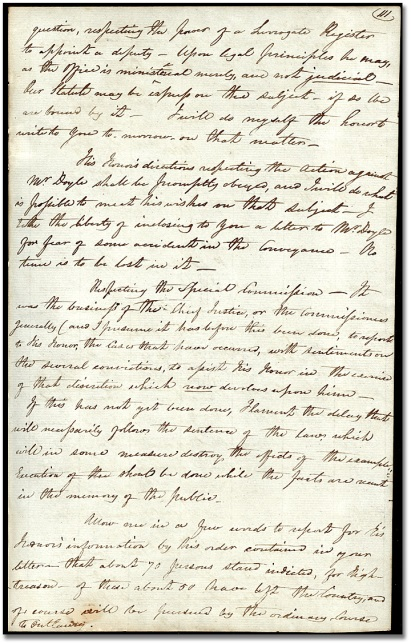 111
question, respecting the power of a Surrogate Register
to appoint a deputy - Upon legal principles he may,
as the office is ministerial merely, and not judicial -
Our Statute may be express on the subject - if so we
are bound by it - I will do myself the honor to
write to you to-morrow on that matter -
His Honor's directions respecting the action against
Mr Doyle shall be promptly obeyed, and I will do what
is possible to meet his wishes on that subject - I
take the liberty of inclosing to you a letter to Mr Doyle
for fear of some accident in the conveyance - No
time is to be lost in it -
Respecting the Special Commission - It
was the business of the Chief Justice, or the Commissioners
generally (and I presume it has before this been done) to report
to His Honor, the cases that have occurred, with sentiments on
the several convictions, to assist His Honor in the exercise
of that discretion which now devolves upon him -
If this has not yet been done, I lament the delay that
will necessarily follow the sentence of the Law which
will in some measure destroy the effects of the example;
Execution of the should be done while the facts are recent
in the memory of the public.
Allow me in a few words to report for His
Honor's information by his order contained in your
letter - that about 70 persons stand indicted, for High
treason - of these about 50 have left the Country, and
of course will be pursued by the ordinary course
to outlawry.